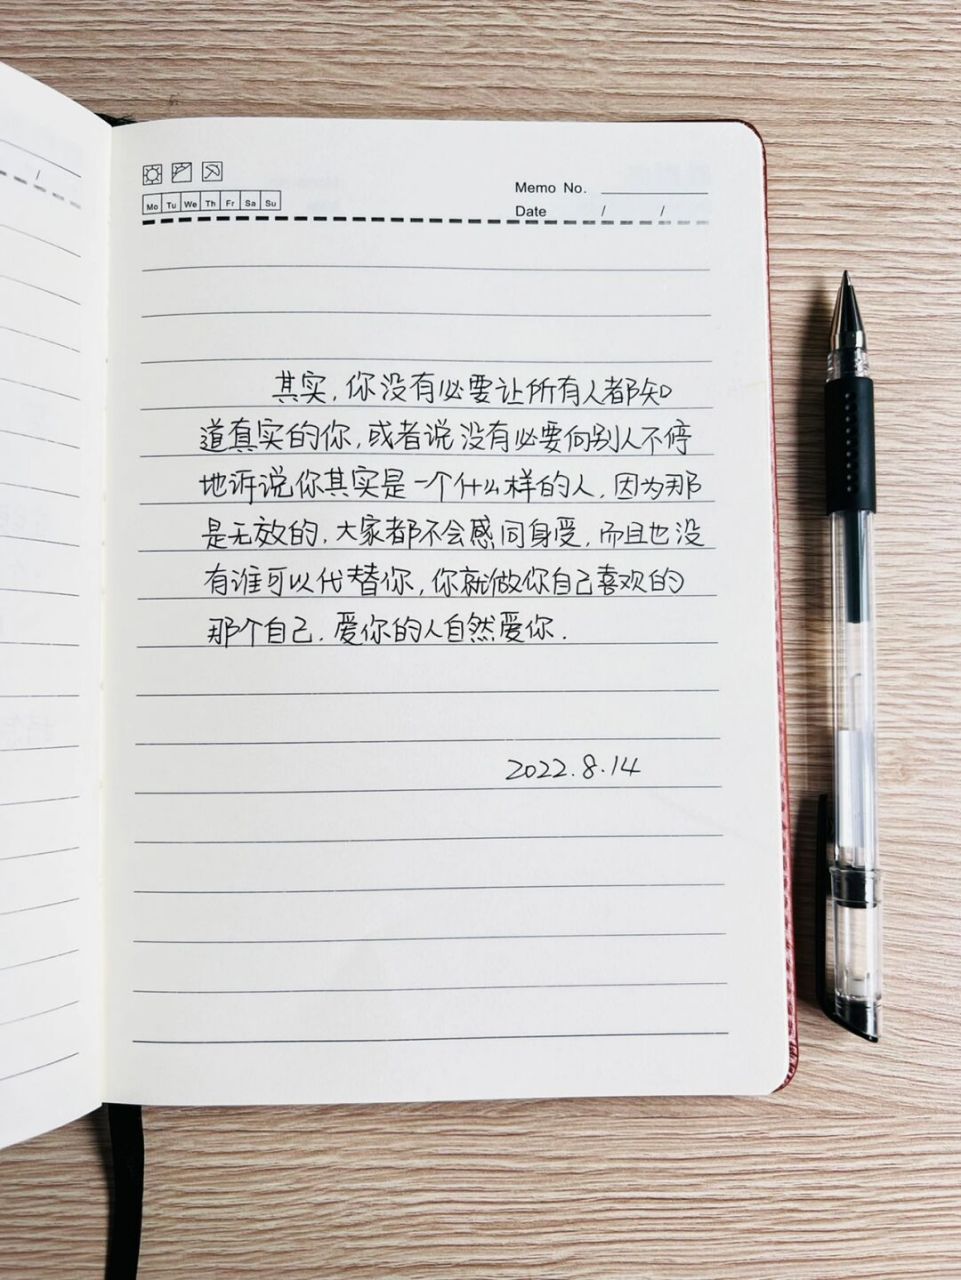 Mo Tu We Th Fr Sa Su
Memo No.
Date / /
其实,你没有必要让所有人都知
道真实的你,或者说没有必要向别人不停
地诉说你其实是一个什么样的人,因为那
是无效的,大家都不会感同身受,而且也没
有谁可以代替你,你就做你自己喜欢的
那个自己.爱你的人自然爱你.
2022.8.14